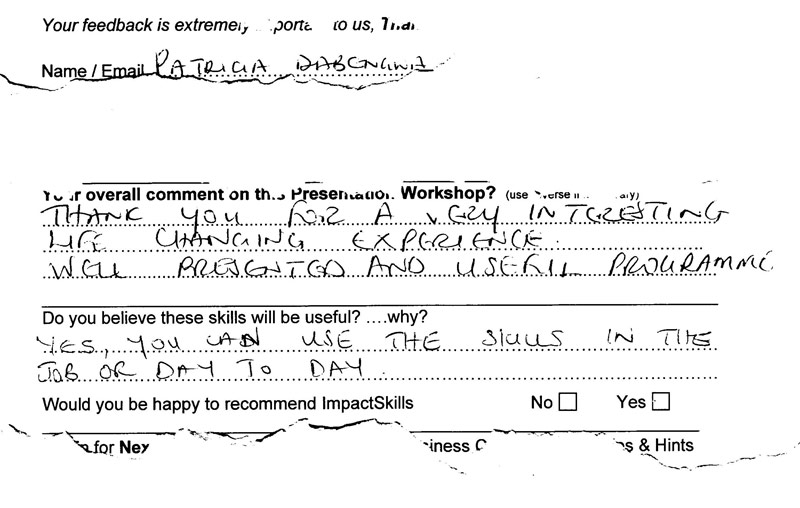 Your feedback is extremely to us,
Name / Email PATRICIA DABENGWA
Your overall comment on this Presentation Workshop? (use
THANK YOU FOR A VERY INTERESTING
LIFE CHANGING EXPERIENCE.
WELL PRESENTED AND USEFUL PROGRAMME
Do you believe these skills will be useful? ....why?
YES, YOU CAN USE THE SKILLS IN THE
JOB OR DAY TO DAY.
Would you be happy to recommend ImpactSkills No Yes
for & Hints